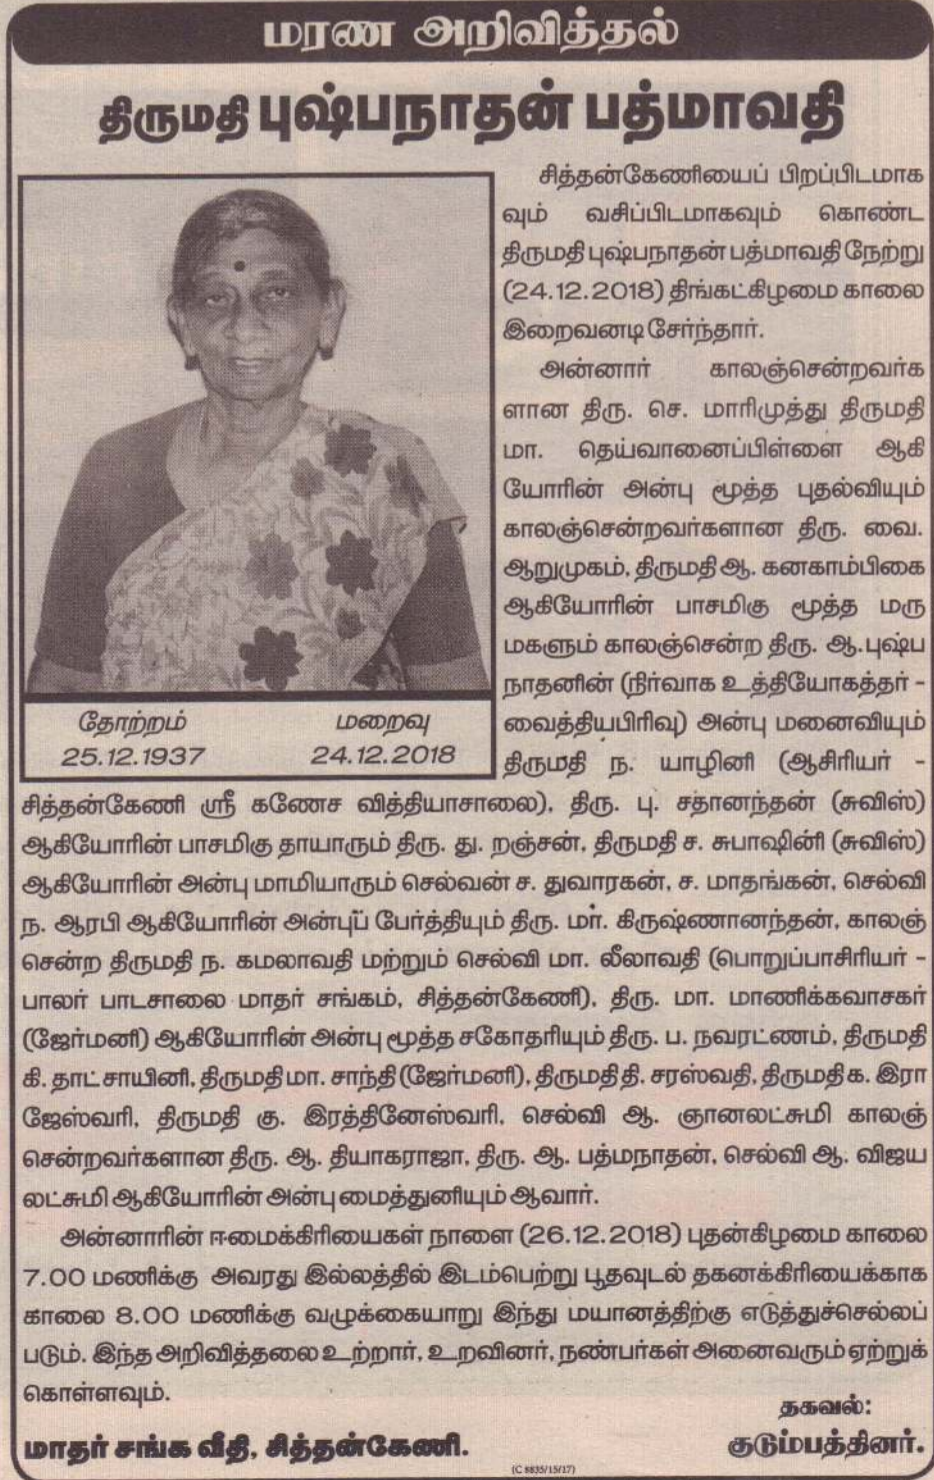 மரண அறிவித்தல்
திருமதி புஷ்பநாதன் பத்மாவதி
சித்தன்கேணியைப் பிறப்பிடமாக
வும் வசிப்பிடமாகவும் கொண்ட
திருமதி புஷ்பநாதன் பத்மாவதி நேற்று
(24.12.2018) திங்கட்கிழமை காலை
இறைவனடி சேர்ந்தார்.
அன்னார் காலஞ்சென்றவர்க
ளான திரு. செ. மாரிமுத்து திருமதி
மா. தெய்வானைப்பிள்ளை ஆகி
யோரின் அன்பு மூத்த புதல்வியும்
காலஞ்சென்றவர்களான திரு. வை.
ஆறுமுகம், திருமதி ஆ. கனகாம்பிகை
ஆகியோரின் பாசமிகு மூத்த மரு
மகளும் காலஞ்சென்ற திரு. ஆ.புஷ்ப
நாதனின் (நிர்வாக உத்தியோகத்தர் -
வைத்தியபிரிவு) அன்பு மனைவியும்
திருமதி ந. யாழினி (ஆசிரியர் -
தோற்றம் மறைவு
25.12.1937 24.12.2018
சித்தன்கேணி ஸ்ரீ கணேச வித்தியாசாலை), திரு. பு. சதானந்தன் (சுவிஸ்)
ஆகியோரின் பாசமிகு தாயாரும் திரு. து. றஞ்சன், திருமதி ச. சுபாஷினி (சுவிஸ்)
ஆகியோரின் அன்பு மாமியாரும் செல்வன் ச. துவாரகன், ச. மாதங்கன், செல்வி
ந. ஆரபி ஆகியோரின் அன்புப் பேர்த்தியும் திரு. மா. கிருஷ்ணானந்தன், காலஞ்
சென்ற திருமதி ந. கமலாவதி மற்றும் செல்வி மா. லீலாவதி (பொறுப்பாசிரியர் -
பாலர் பாடசாலை மாதர் சங்கம், சித்தன்கேணி), திரு. மா. மாணிக்கவாசகர்
(ஜேர்மனி) ஆகியோரின் அன்பு மூத்த சகோதரியும் திரு. ப. நவரட்ணம், திருமதி
கி. தாட்சாயினி, திருமதி மா. சாந்தி (ஜேர்மனி), திருமதி தி. சரஸ்வதி, திருமதி க. இரா
ஜேஸ்வரி, திருமதி கு. இரத்தினேஸ்வரி, செல்வி ஆ. ஞானலட்சுமி காலஞ்
சென்றவர்களான திரு. ஆ. தியாகராஜா, திரு. ஆ. பத்மநாதன், செல்வி ஆ. விஜய
லட்சுமி ஆகியோரின் அன்பு மைத்துனியும் ஆவார்.
அன்னாரின் ஈமைக்கிரியைகள் நாளை (26.12.2018) புதன்கிழமை காலை
7.00 மணிக்கு அவரது இல்லத்தில் இடம்பெற்று பூதவுடல் தகனக்கிரியைக்காக
காலை 8.00 மணிக்கு வழுக்கையாறு இந்து மயானத்திற்கு எடுத்துச்செல்லப்
படும். இந்த அறிவித்தலை உற்றார், உறவினர், நண்பர்கள் அனைவரும் ஏற்றுக்
கொள்ளவும்.
தகவல்:
மாதர் சங்க வீதி, சித்தன்கேணி. குடும்பத்தினர்.
(C 8835/15/17)